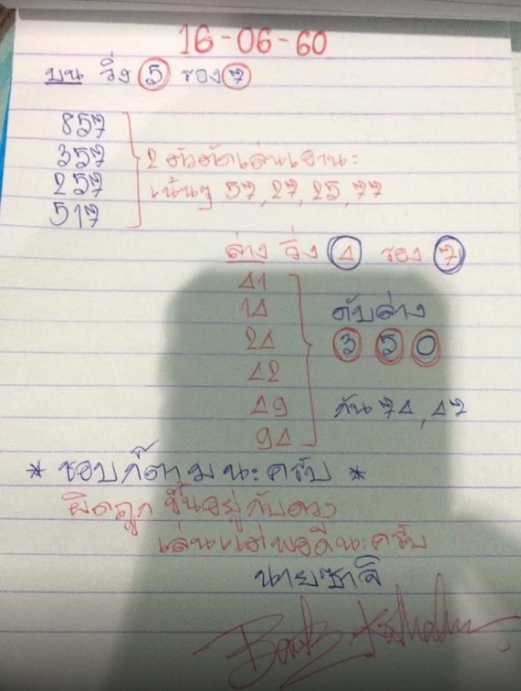 16-06-60
บน วิ่ง 5 รอง 7
857
357
257
517
2 ตัวตัดเล่นเอานะ
เน้นๆ 57, 27, 25, 77
ล่าง วิ่ง 4 รอง 7
41
14
24
42
49
94
ดับล่าง
3 5 0
กัน 74, 47
* ชอบก็ตามนะครับ *
ผิดถูก ขึ้นอยู่กับดวง
เล่นแต่พอดีนะครับ
นายซาจิ